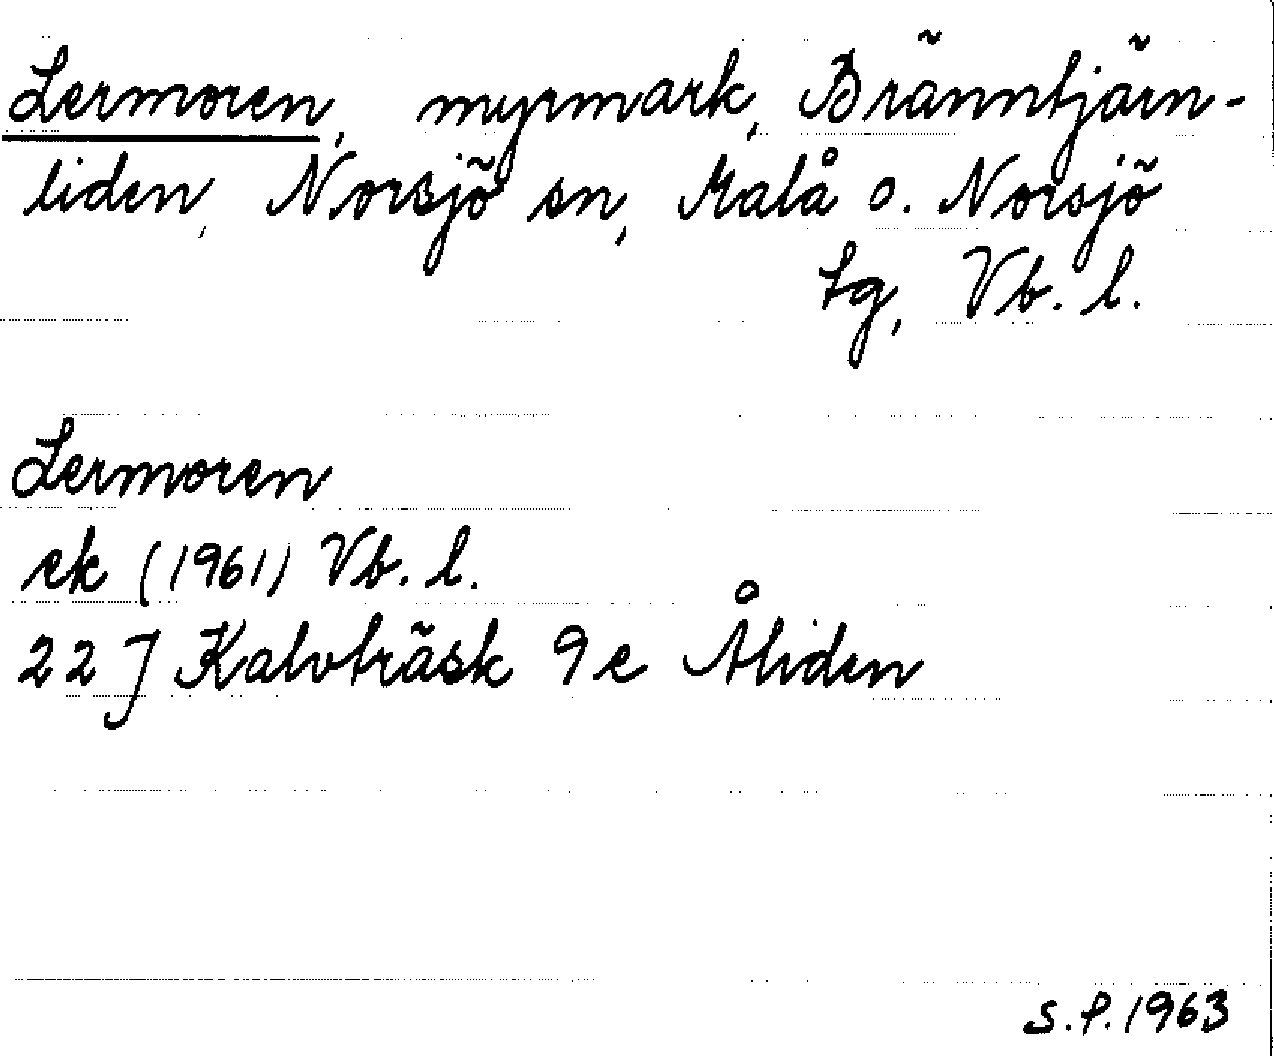 Lermoren, myrmark, Bränntjärn-
liden, Norsjö sn, Malå o. Norsjö
tg, Vb. l.
Lermoren
ek (1961) Vb. l.
22 J Kalvträsk 9e Åliden
S.P. 1963